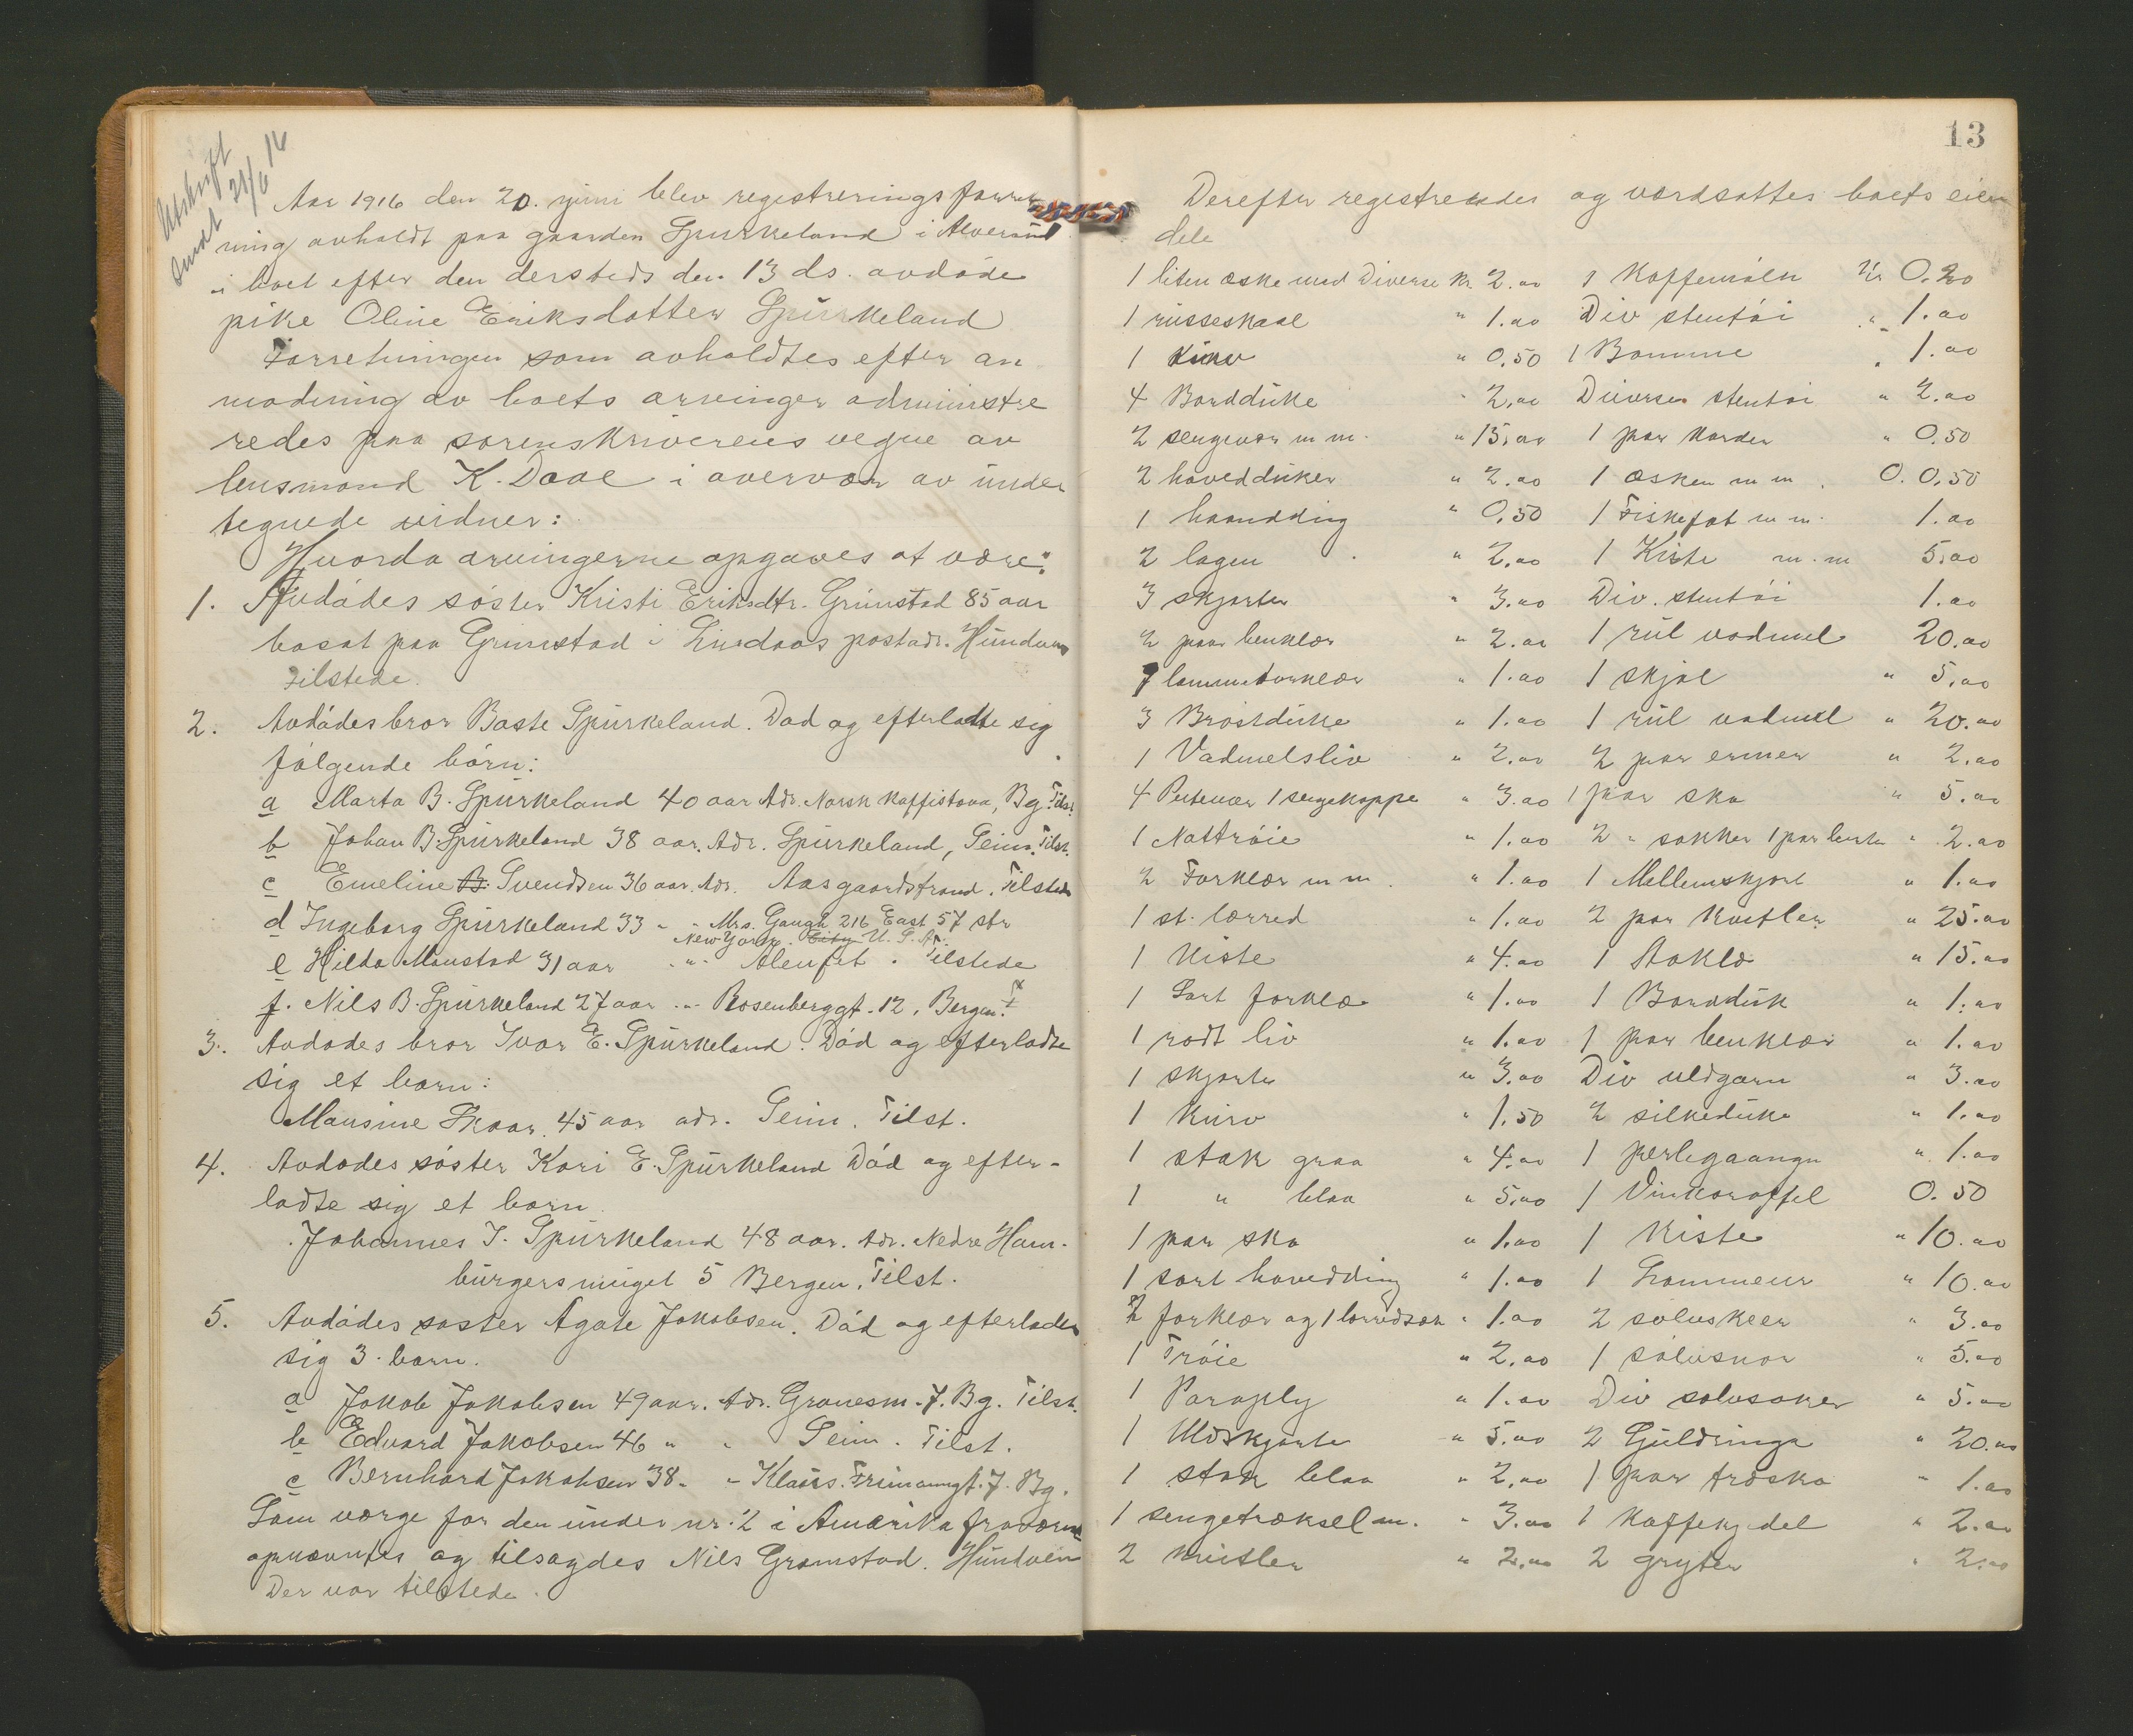 Utskrift
sendt 21/6 16
Aar 1916 den 20. juni blev registreringsforret
ning avholdt paa gaarden Spurkeland i Alversund
i boet efter den dersteds den 13 ds. avdöde
pike Oline Eriksdotter Spurkeland
Forretningen som avholdtes efter an
modning av boets arvinger administre
redes paa sorenskriverens vegne av
lensmand K. Daae i overvær av under
tegnede vidner:
Hvorda arvingerne opgaves at være:
1. Avdödes söster Kristi Eriksdtr. Grimstad 85 aar
bosat paa Grimstad i Lindaas postadr. Hundven
tilstede.
2. Avdödes bror Baste Spurkeland. Död og efterladte sig
følgende börn:
a Marta B. Spurkeland 40 aar Adr. Norsk Kaffistova, Bg. Tilst.
b Johan B. Spurkeland 38 aar. Adr. Spurkeland, Seim. Tilst.
c Emeline B. Svendsen 36 aar. Adr. Aasgaardstrand. Tilstede
d Ingeborg Spurkeland 33 " " Mrs. Gaugh 216 East 57 str
New York. City U. S. A.
e Hilda Monstad 31 aar " " Alenfit. Tilstede
f. Nils B. Spurkeland 27 aar " Rosenberggt. 12, Bergen. T
3. Avdödes bror Ivar E. Spurkeland. Död og efterladte
sig et barn:
Mansine Skaar. 45 aar adr. Seim. Tilst.
4. Avdödes söster Kari E. Spurkeland Död og efter-
ladte sig et barn
Johannes J. Spurkeland 48 aar. Adr. Nedre Ham-
burgersmuget 5 Bergen. Tilst.
5. Avdödes söster Agate Jakobsen. Död og efterlader
sig 3 barn.
a Jakob Jakobsen 49 aar. Adr. Gronesm. 7. Bg. Tilst.
b Edvard Jakobsen 46 " " Seim. Tilst.
c Bernhard Jakobsen 38 " " Klaus. Frimanngt. 7. Bg.
Som værge for den under nr. 2 i Amerika fraværende
opnævntes og tilsagdes Nils Gramstad. Hundven
Der var tilstede.
13
Derefter registreredes og værdsattes boets eien
dele
1 liten æske med Diverse kr. 2.00 1 Kaffemöln kr 0.20
1 russeskaal " 1.00 Div stentöi " 1.00
1 Kurv " 0.50 1 Bomme " 1.00
4 Bordduke " 2.00 Diverse stentöi " 2.00
2 sengevær m m. " 15.00 1 par Karder " 0.50
2 hovedduker " 2.00 1 æsken m m. 0. 0.50
1 haandding " 0.50 1 Fiskefat m m. 1.00
2 lagen " 2.00 1 Kiste m.m 5.00
3 skjorter " 3.00 Div. stentöi 1.00
2 par benklær " 2.00 1 rul vadmel 20.00
7 lommetorklær " 1.00 1 skjol " 5.00
3 Brostduke " 1.00 1 rul vadmel " 20.00
1 Vadmelsliv " 2.00 2 par ermer " 2.00
4 Putevær 1 sengekappe " 3.00 1 par sko " 5.00
1 Nattröie " 1.00 2 " sokker 1 par " 2.00
2 Forklær m m. " 1.00 1 Mellemskjört " 1.00
1 st. lærred " 1.00 2 par Kvitler " 25.00
1 Kiste " 4.00 1 Aaklæ " 15.00
1 Sort forklæ " 1.00 1 Bordduk " 1.00
1 rödt liv " 1.00 1 par benklær " 1.00
1 skjorte " 3.00 Div uldgarn " 3.00
1 Kurv " 1.50 2 silkeduke " 1.00
1 stak graa " 4.00 1 perlegaangn " 1.00
1 " blaa " 5.00 1 Vinkaraffel 0.50
1 par sko " 1.00 1 Kiste " 10.00
1 sort hovedding " 1.00 1 Lommeur " 10.00
2 forklær og 1 lærredsæk " 1.00 2 sölvskeer " 3.00
1 Tröie " 2.00 1 sölvsnor " 5.00
1 Paraply " 1.00 Div sölvsaker " 5.00
1 Uldskjorte " 5.00 2 Guldringe " 20.00
1 stak blaa " 2.00 1 par træsko " 1.00
1 sengetræksel m. " 3.00 1 Kaffekjedel " 2.00
2 Kvitler " 2.00 2 gryter " 2.00